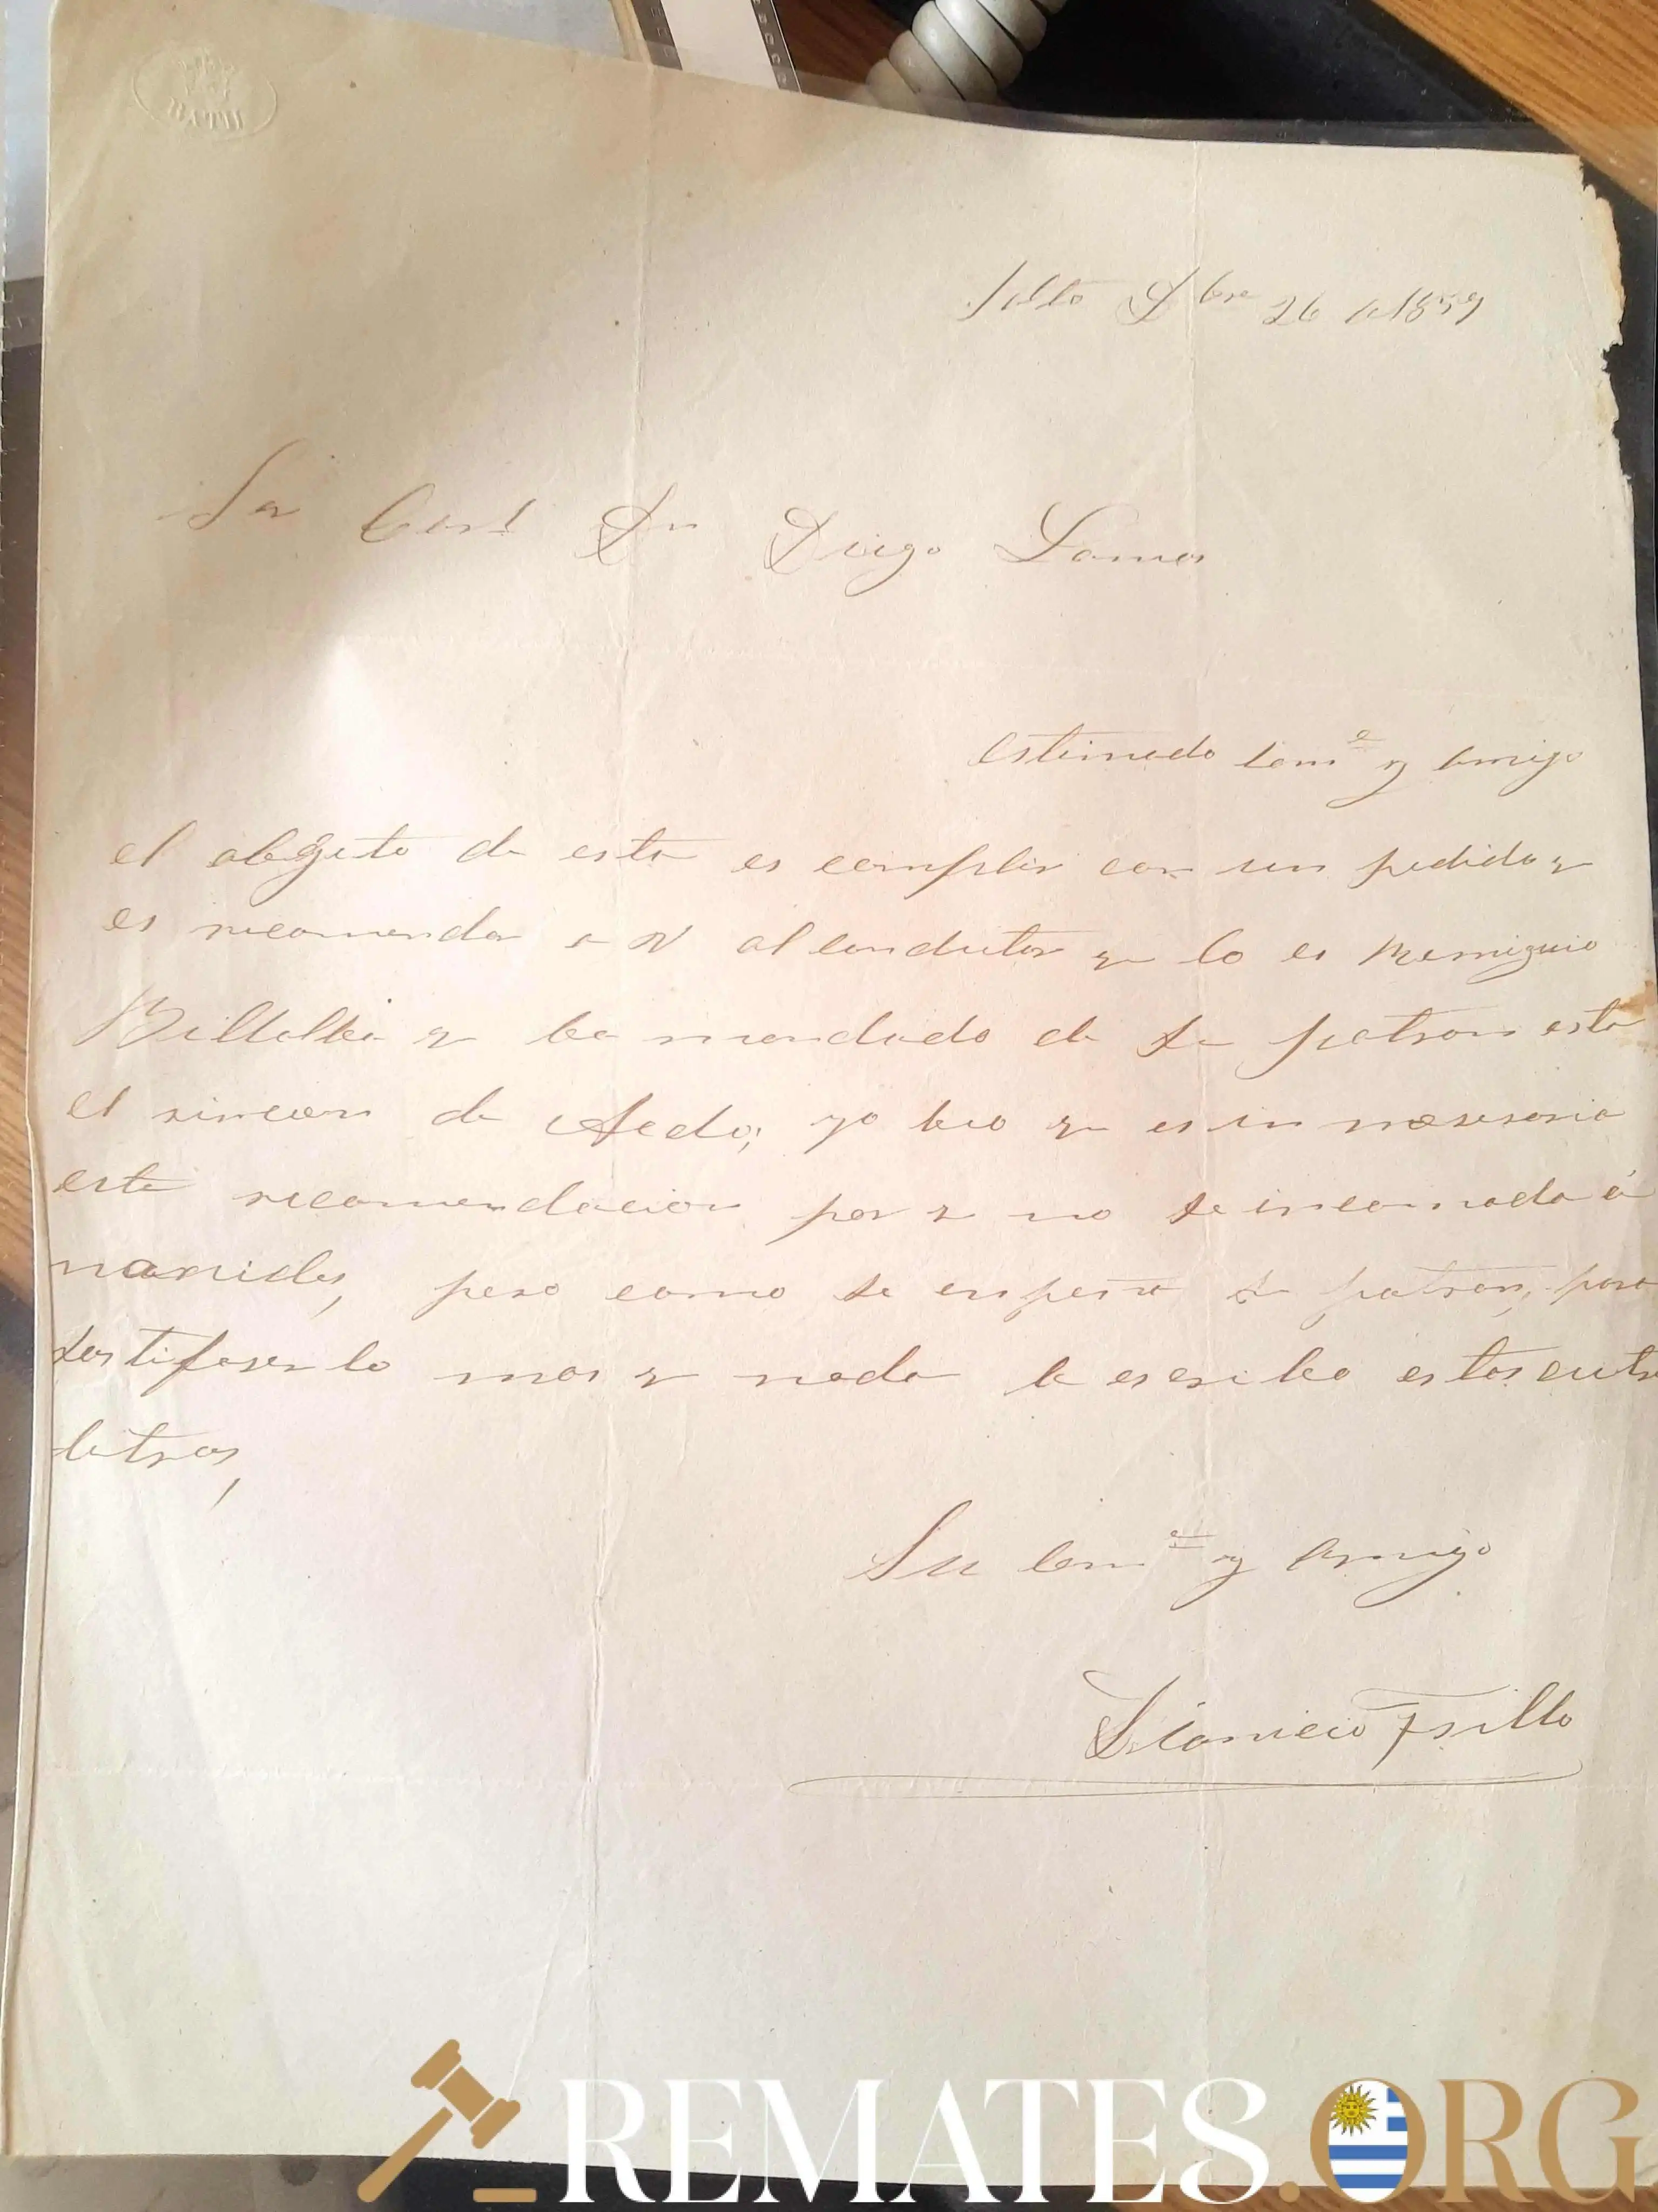 BATH
Salto Dbre 26 de 1859
Sor Corl Dn Diego Lamas
Estimado Comе y amigo
el obgeto de esta es complir con un pedido q
es recomendar a V al condutor q lo es Remiguio
Billalba q ba mandado de su patron esta
el rincon de Aedo; yo beo q es in nesesaria
esta recomendacion por q no se incomoda á
nanides, pero como se enpeña su patron, para
sastifaserlo mas q nada le escribo estas cuatro
letras,
Su Come y amigo
Dionicio Trillo
REMATES.ORG